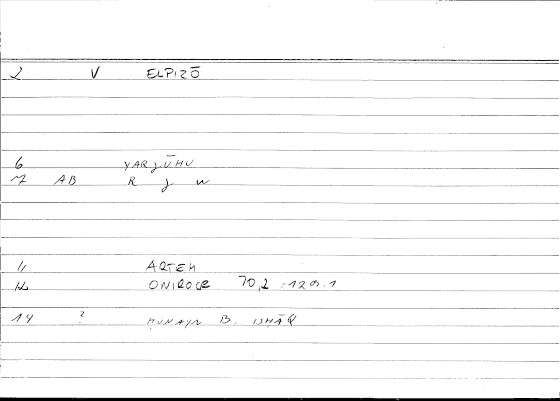 2 V ELPIZŌ
6 YARJŪHU
7 AB R J W
11 ARTEM
12 ONIROCR 70,2 :129.1
14 ? HUNAYN B. ISHĀQ